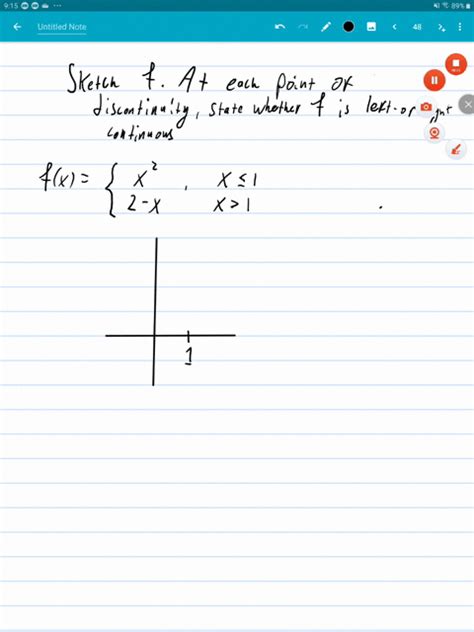 9:15
89%
Untitled Note
48
Sketch f. At each point of
discontinuity, state whether f is left-or
continuous
f(x) = { x², x ≤ 1
2-x x > 1
1